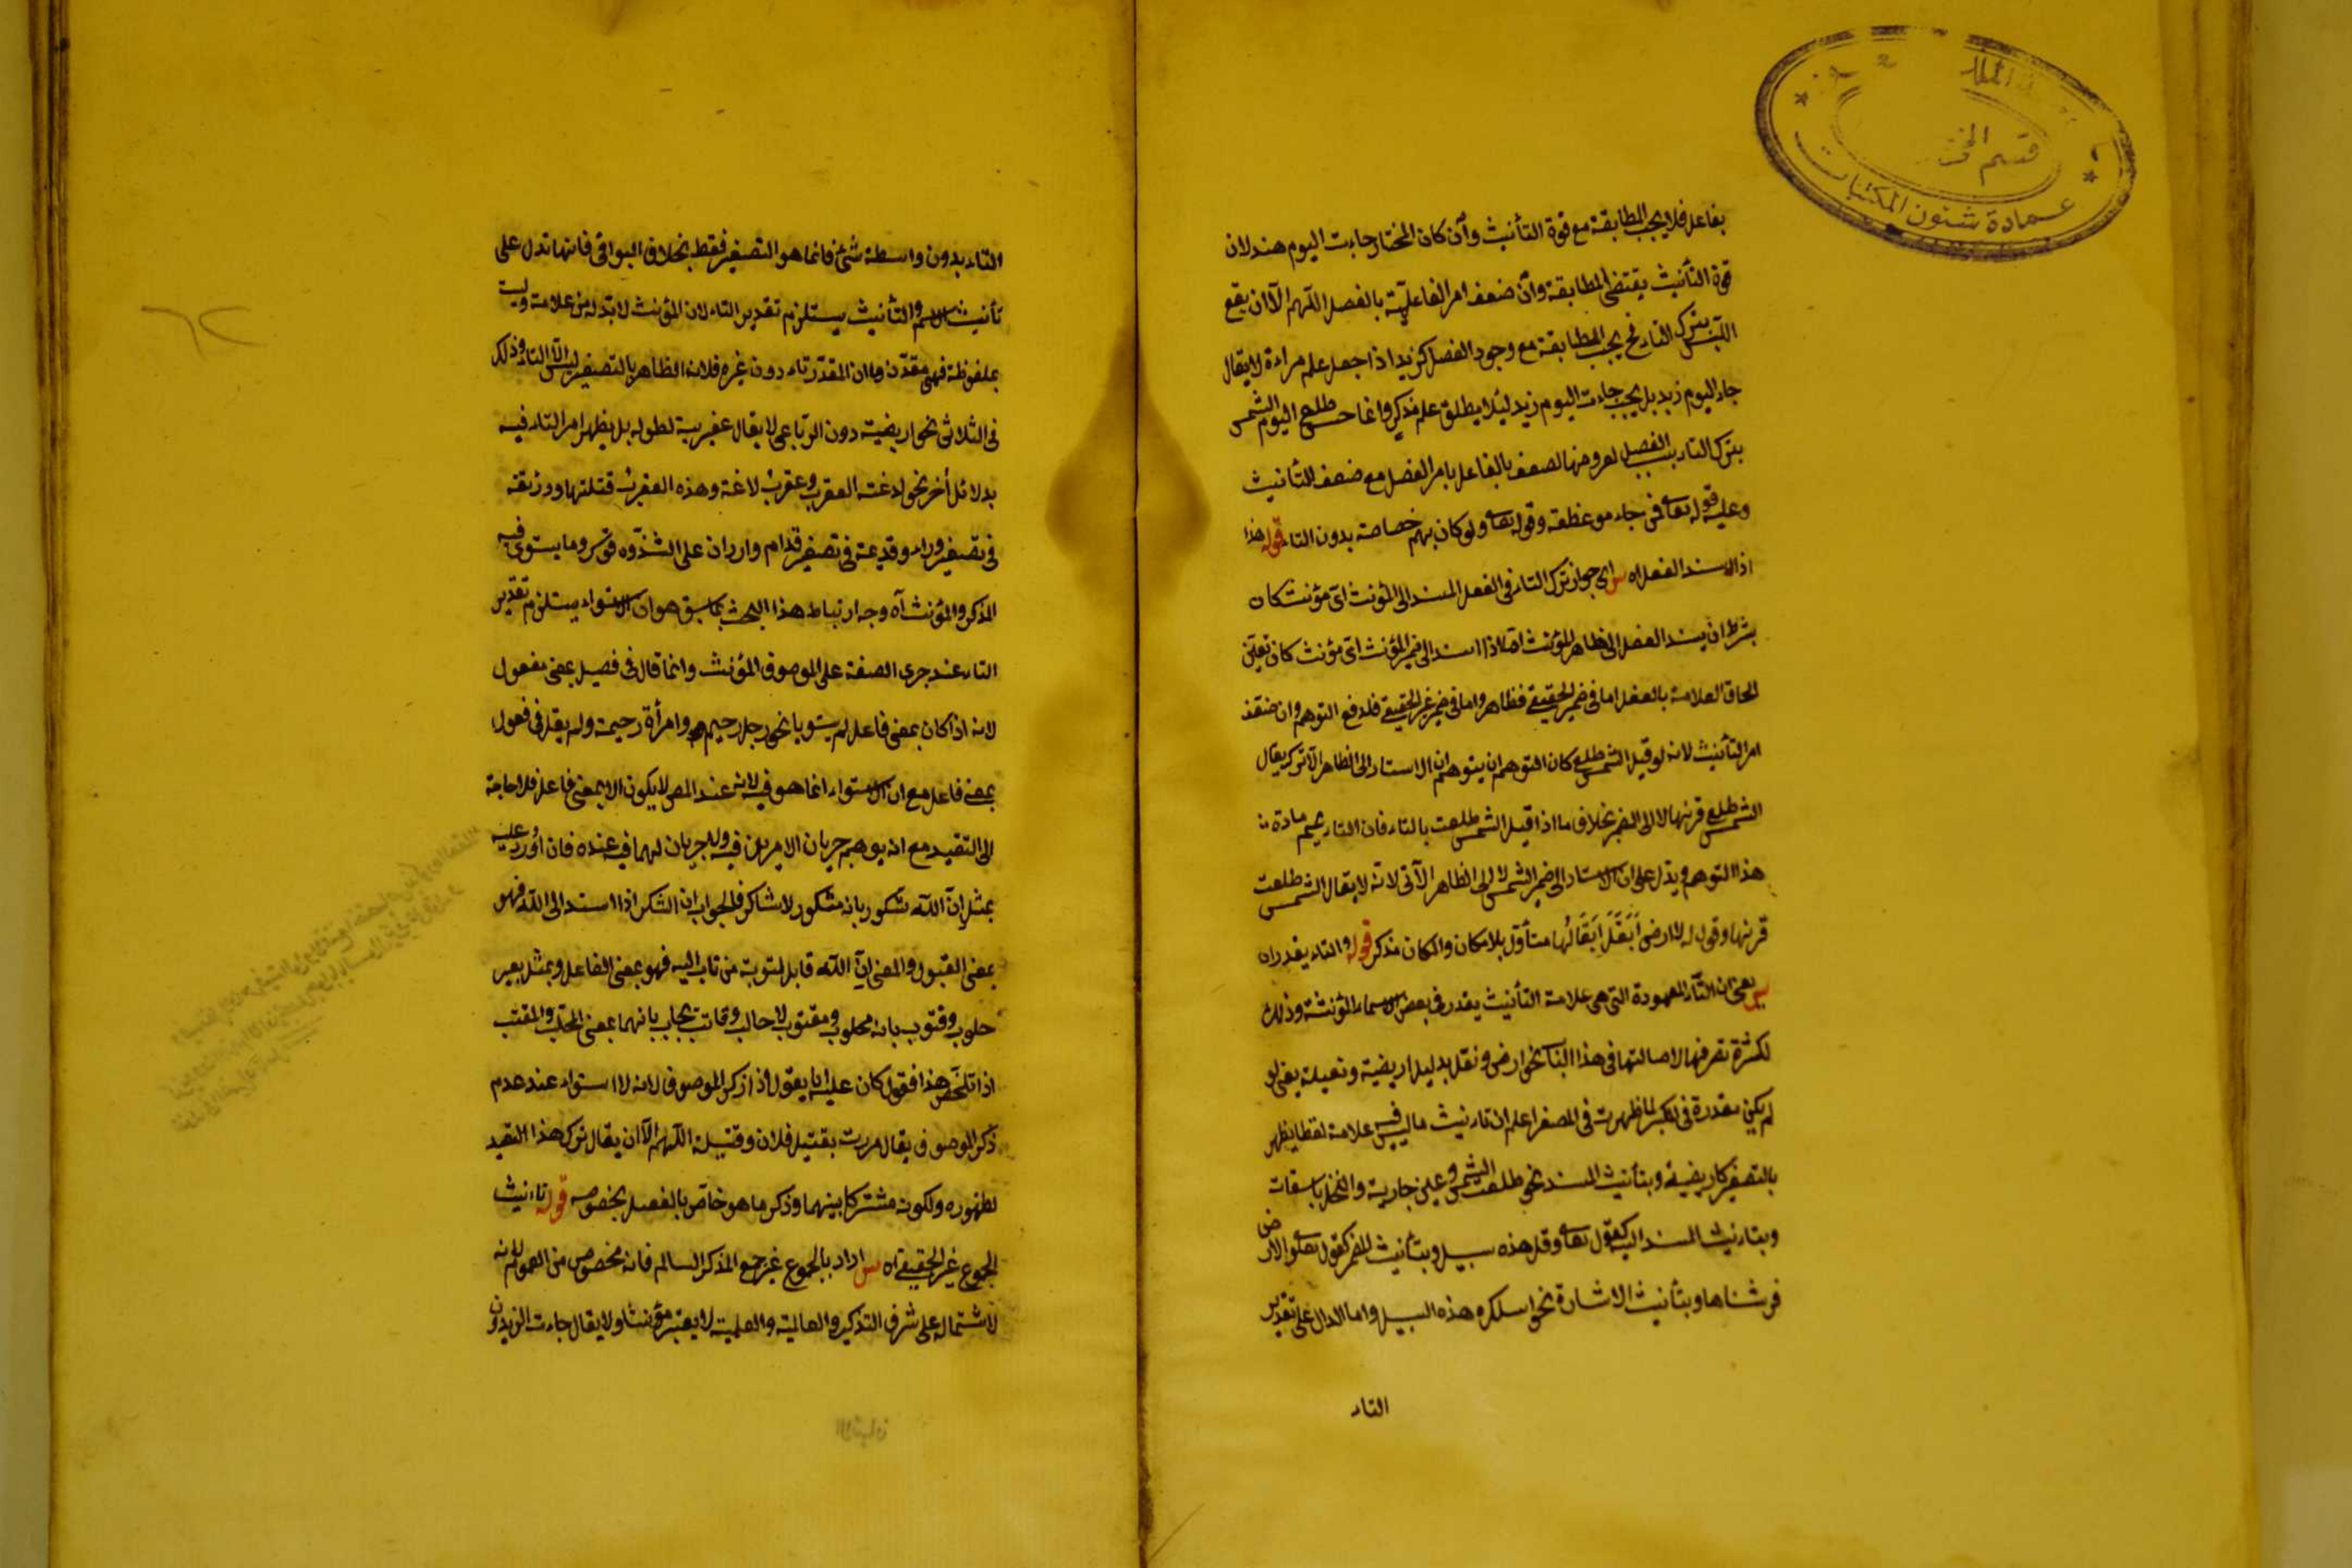 بفاعل فلا يجب المطابقة مع قوة التأنيث وأن كان المختار جاءت اليوم هند لان
قوة التأنيث يقتضى المطابقة وأن ضعف امر الفاعلية بالفصل اللهم الآ ان يقع
اللبس بترك التاء فح يجب المطابقة مع وجود الفصل كزيد اذا جعل علم مراءة لا يقال
جاء اليوم زيد بل يجب جاءت اليوم زيد لئلا يطلق علم مذكر وانما حسن طلع اليوم الشمس
بترك التاء بسبب الفصل لعروضها لضعف بالفاعل بامر الفصل مع ضعف التأنيث
وعليه قوله تعا فمن جاءه موعظة وقوله تعا ولو كان بهم خصاصة بدون التاء قوله هذا
اذا اسند الفعل اه س اى جواز ترك التاء فى الفعل المسند الى المؤنث اى مؤنث كان
بشرط ان يسند الفعل الى ظاهر المؤنث امّا اذا اسند الى ضمير المؤنث اىّ مؤنث كان تعيّن
الحاق العلامة بالفعل اما فى ضمير الحقيقى فظاهر واما فى ضمير غير الحقيقى فلدفع التوهم وان ضعف
امر التأنيث لانه لو قيل الشمس طلع كان التوهم ان يتوهم ان الاسناد الى الظاهر الآتى كى يقال
الشمس طلع قرنها لا الى الضمير بخلاف ما اذا قيل الشمس طلعت بالتاء فان التاء يحسم مادة
هذا التوهم ويدل على ان الاسناد الى ضمير الشمس لا الى الظاهر الآتى لانه لا يقال الشمس طلعت
قرنها وقوله لا ارض أَبْقَلَ اِبْقَالُها متأوّل بلا مكان والمكان مذكر قوله والتاء يقدر اه
س يعنى ان التاء المعهودة التى هى علامة التأنيث يقدر فى بعض الاسماء المؤنثة وذلك
لكثرة تصرفها لاصالتها فى هذا الباب نحو ارض ونعل بدليل اريضة ونعيلة يعنى لو
لم يكن مقدرة فى المكبر لما ظهرت فى المصغر اعلم ان تاءنيث ما ليس فيه علامة لفظا يظهر
بالتصغير كاريضة وبتأنيث المسند نحو طلعت الشمس وعين جارية والنخل باسقات
وبتاءنيث المسند اليه كقوله تعا وقل هذه سبيلى وبتأنيث الضمير كقوله تعا والارض
فرشناها وبتأنيث الاشارة نحو اسلكوا هذه السبيل واما الدال على تقدير
التاء
التاء بدون واسطة شئ فانما هو التصغير فقط بخلاف البواقى فانها تدل على
تأنيث الاسم والتأنيث يستلزم تقدير التاء لان المؤنث لابد له من علامة وليست
بملفوظة فهى مقدّرة واان المقدّر تاء دون غيره فلانه الظاهر بالتصغير ليس الّا التاء وذلك
فى الثلاثى نحو اريضة دون الرباعى لا يقال عقيربة لطوله بل يظهر امر التاء فيه
بدلائل أخر نحو لدغته العقرب وعقرب لادغة وهذه العقرب قتلتها ووريّئة
فى تصغير وراء وقديمة فى تصغير قدام واردان على الشذوذ قوله س وما يستوى فيه
المذكر والمؤنث آه وجه ارتباط هذا البحث بما سبق هو ان الاستواء يستلزم تقدير
التاء عند جرى الصفة على الموصوف المؤنث وانما قال فى فعيل بمعنى مفعول
لانه اذا كان بمعنى فاعل لم يستويا نحو رجل رحيم وامرأة رحيمة ولم يقل فى فعول
بمعنى فاعل مع ان الاستواء انما هو فيه لانه عند المص لا يكون الا بمعنى فاعل فلا حاجة
الى التقييد مع انه يوهم جريان الامرين فيه ولا جريان لهما فيه عنده فان أورد عليه
بمثل انّ اللّه شكور بانه مشكور لا شاكر فالجواب ان الشكر اذا اسند الى اللّه فهو
بمعنى القبول والمعنى انّ اللّه قابل لتوبة من تاب اليه فهو بمعنى الفاعل وبمثل بعير
حلوب وقتوب بانه محلوب ومقتوب لا حالب وقاتب يجاب بانهما بمعنى المحلب والمقتب
اذا تلخّص هذا فقول كان عليه ان يقول اذا ذكر الموصوف لانه لا استواء عند عدم
ذكر الموصوف يقال مررت بقتيل فلان وقتيلة اللّهم الّا ان يقال ترك هذا القيد
لظهوره ولكونه مشتركا بينهما وذكر ما هو خاص بالفعيل بخصوصه قوله تاءنيث
الجموع غير الحقيقى اه س اراد بالجموع غير جمع المذكر السالم فانه مخصوص من العموم لانه
لاشتماله على شرف التذكير والعالمية والعلمية لا يعتبر مؤنثا ولا يقال جاءت الزيدون
عمادة شئون المكتبات